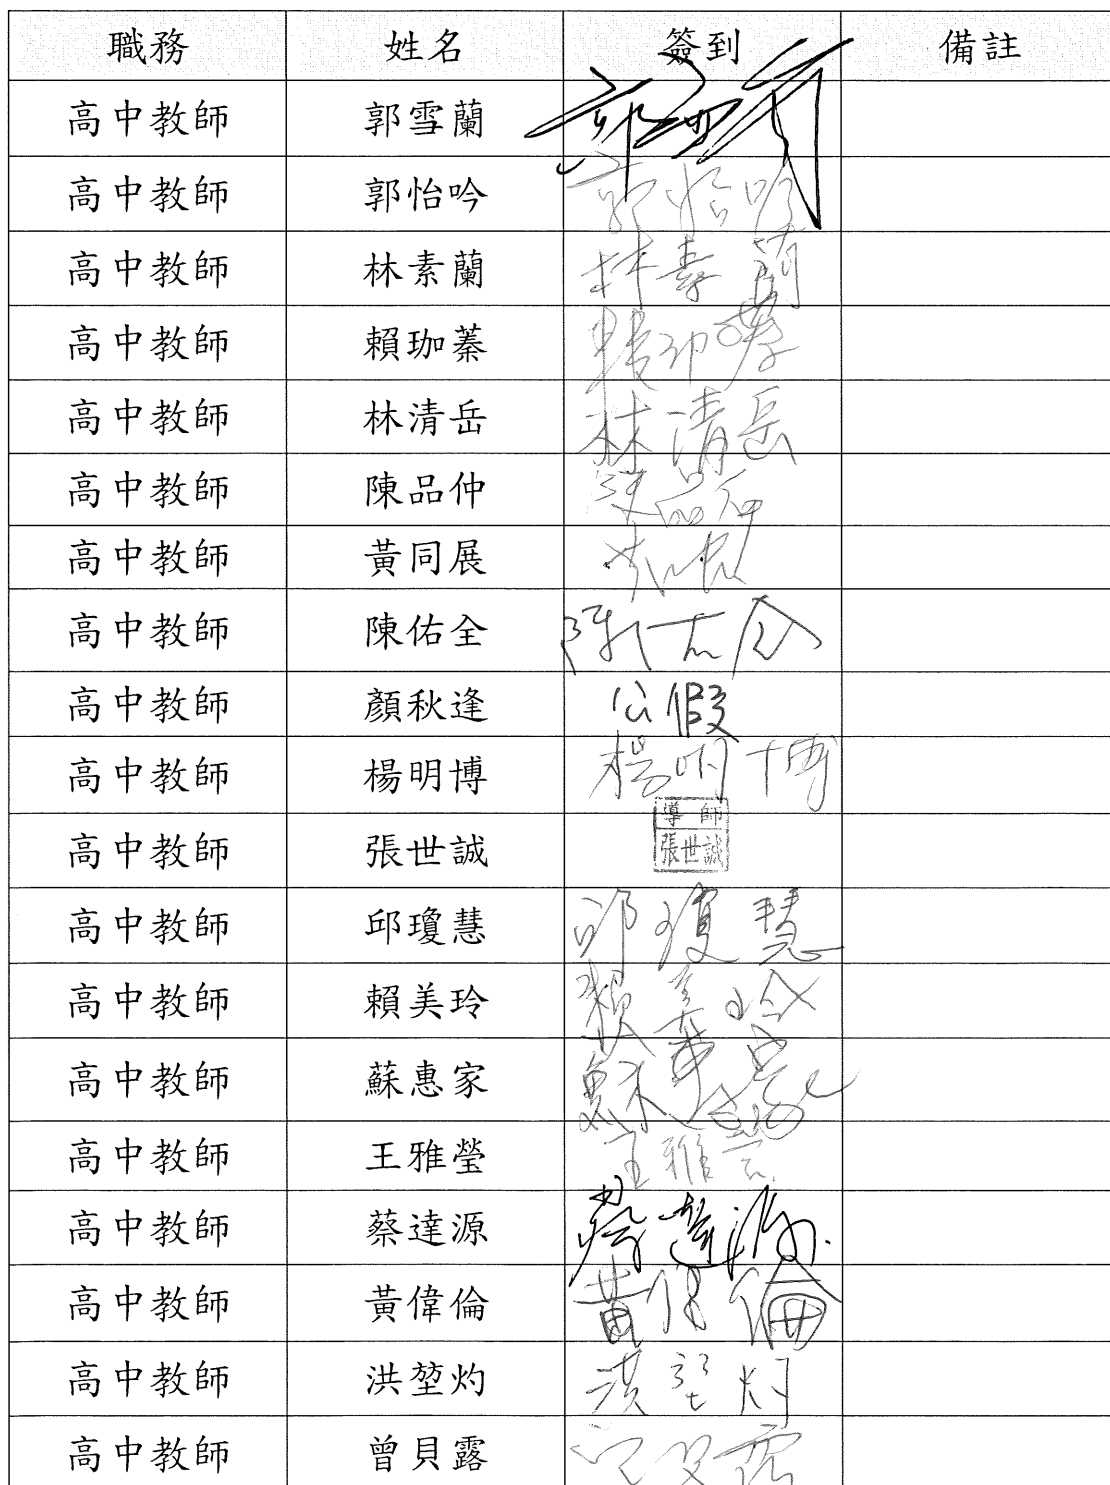 職務 姓名 簽到 備註
高中教師 郭雪蘭
高中教師 郭怡吟 郭怡吟
高中教師 林素蘭 林素蘭
高中教師 賴珈蓁
高中教師 林清岳 林清岳
高中教師 陳品仲 陳品仲
高中教師 黃同展
高中教師 陳佑全 陳佑全
高中教師 顏秋逢 公假
高中教師 楊明博 楊明博
高中教師 張世誠 導師 張世誠
高中教師 邱瓊慧 邱瓊慧
高中教師 賴美玲 賴美玲
高中教師 蘇惠家 蘇惠家
高中教師 王雅瑩 王雅瑩
高中教師 蔡達源 蔡達源
高中教師 黃偉倫 黃偉倫
高中教師 洪堃灼 洪堃灼
高中教師 曾貝露 曾貝露